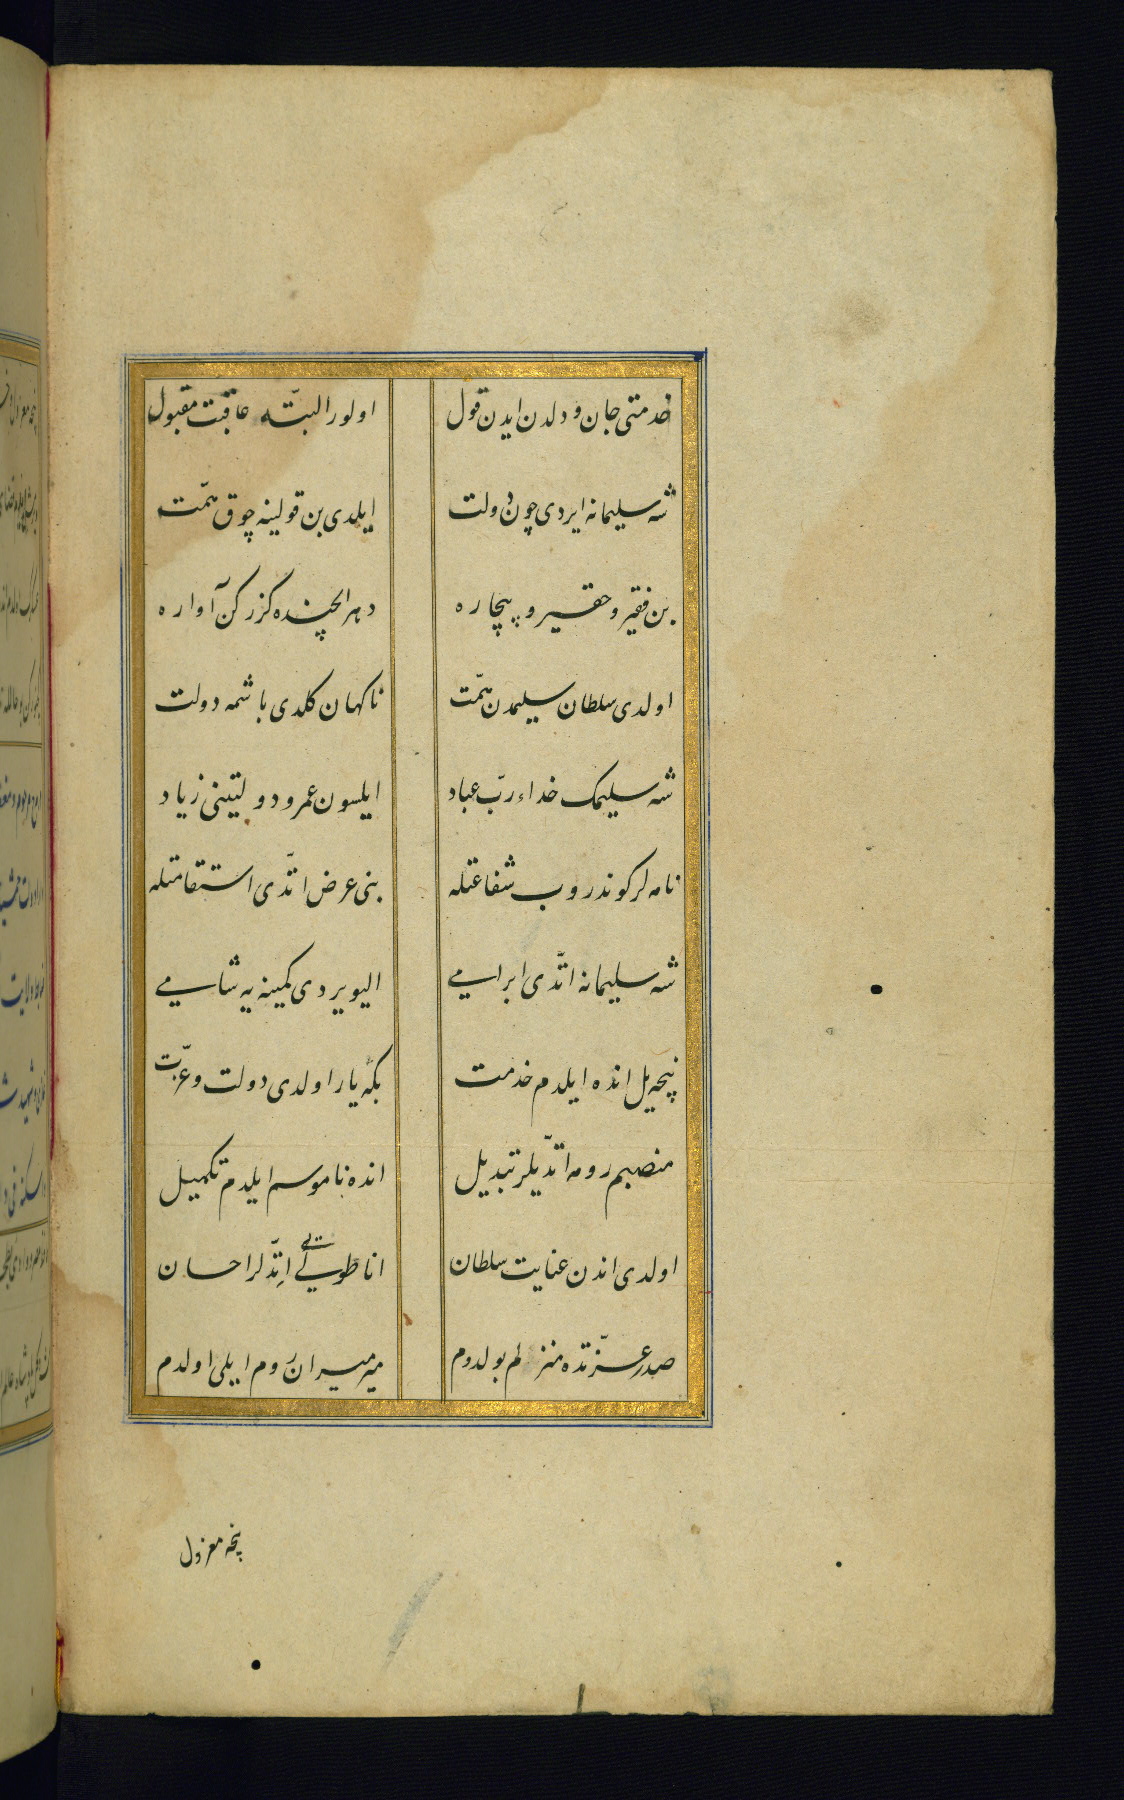 خدمتی جان و دلدن ایدن قول اولور البتّه عاقبت مقبول
شه سلیمانه ایردی چون دولت ایلدی بن قولینه چوق همّت
بن فقیر و حقیر و بیچاره دهر ایچنده گزرکن آواره
اولدی سلطان سلیمدن همّت ناگهان کلدی باشمه دولت
شه سلیمک خداء ربّ عباد ایلسون عمر و دولتینی زیاد
نامه لر کوندروب شفاعتله بنی عرض اتّدی استقامتله
شه سلیمانه اتّدی ابرامی الیویردی کمینه یه شامی
نیچه ییل انده ایلدم خدمت بکه یار اولدی دولت و عزّت
منصبم رومه اتدّیلر تبدیل انده ناموسم ایلدم تکمیل
اولدی اندن عنایت سلطان اناطولیی اتدّلر احسان
صدر عزّتده منزلم بولدوم میر میران روم ایلی اولدم
نیچه معزول